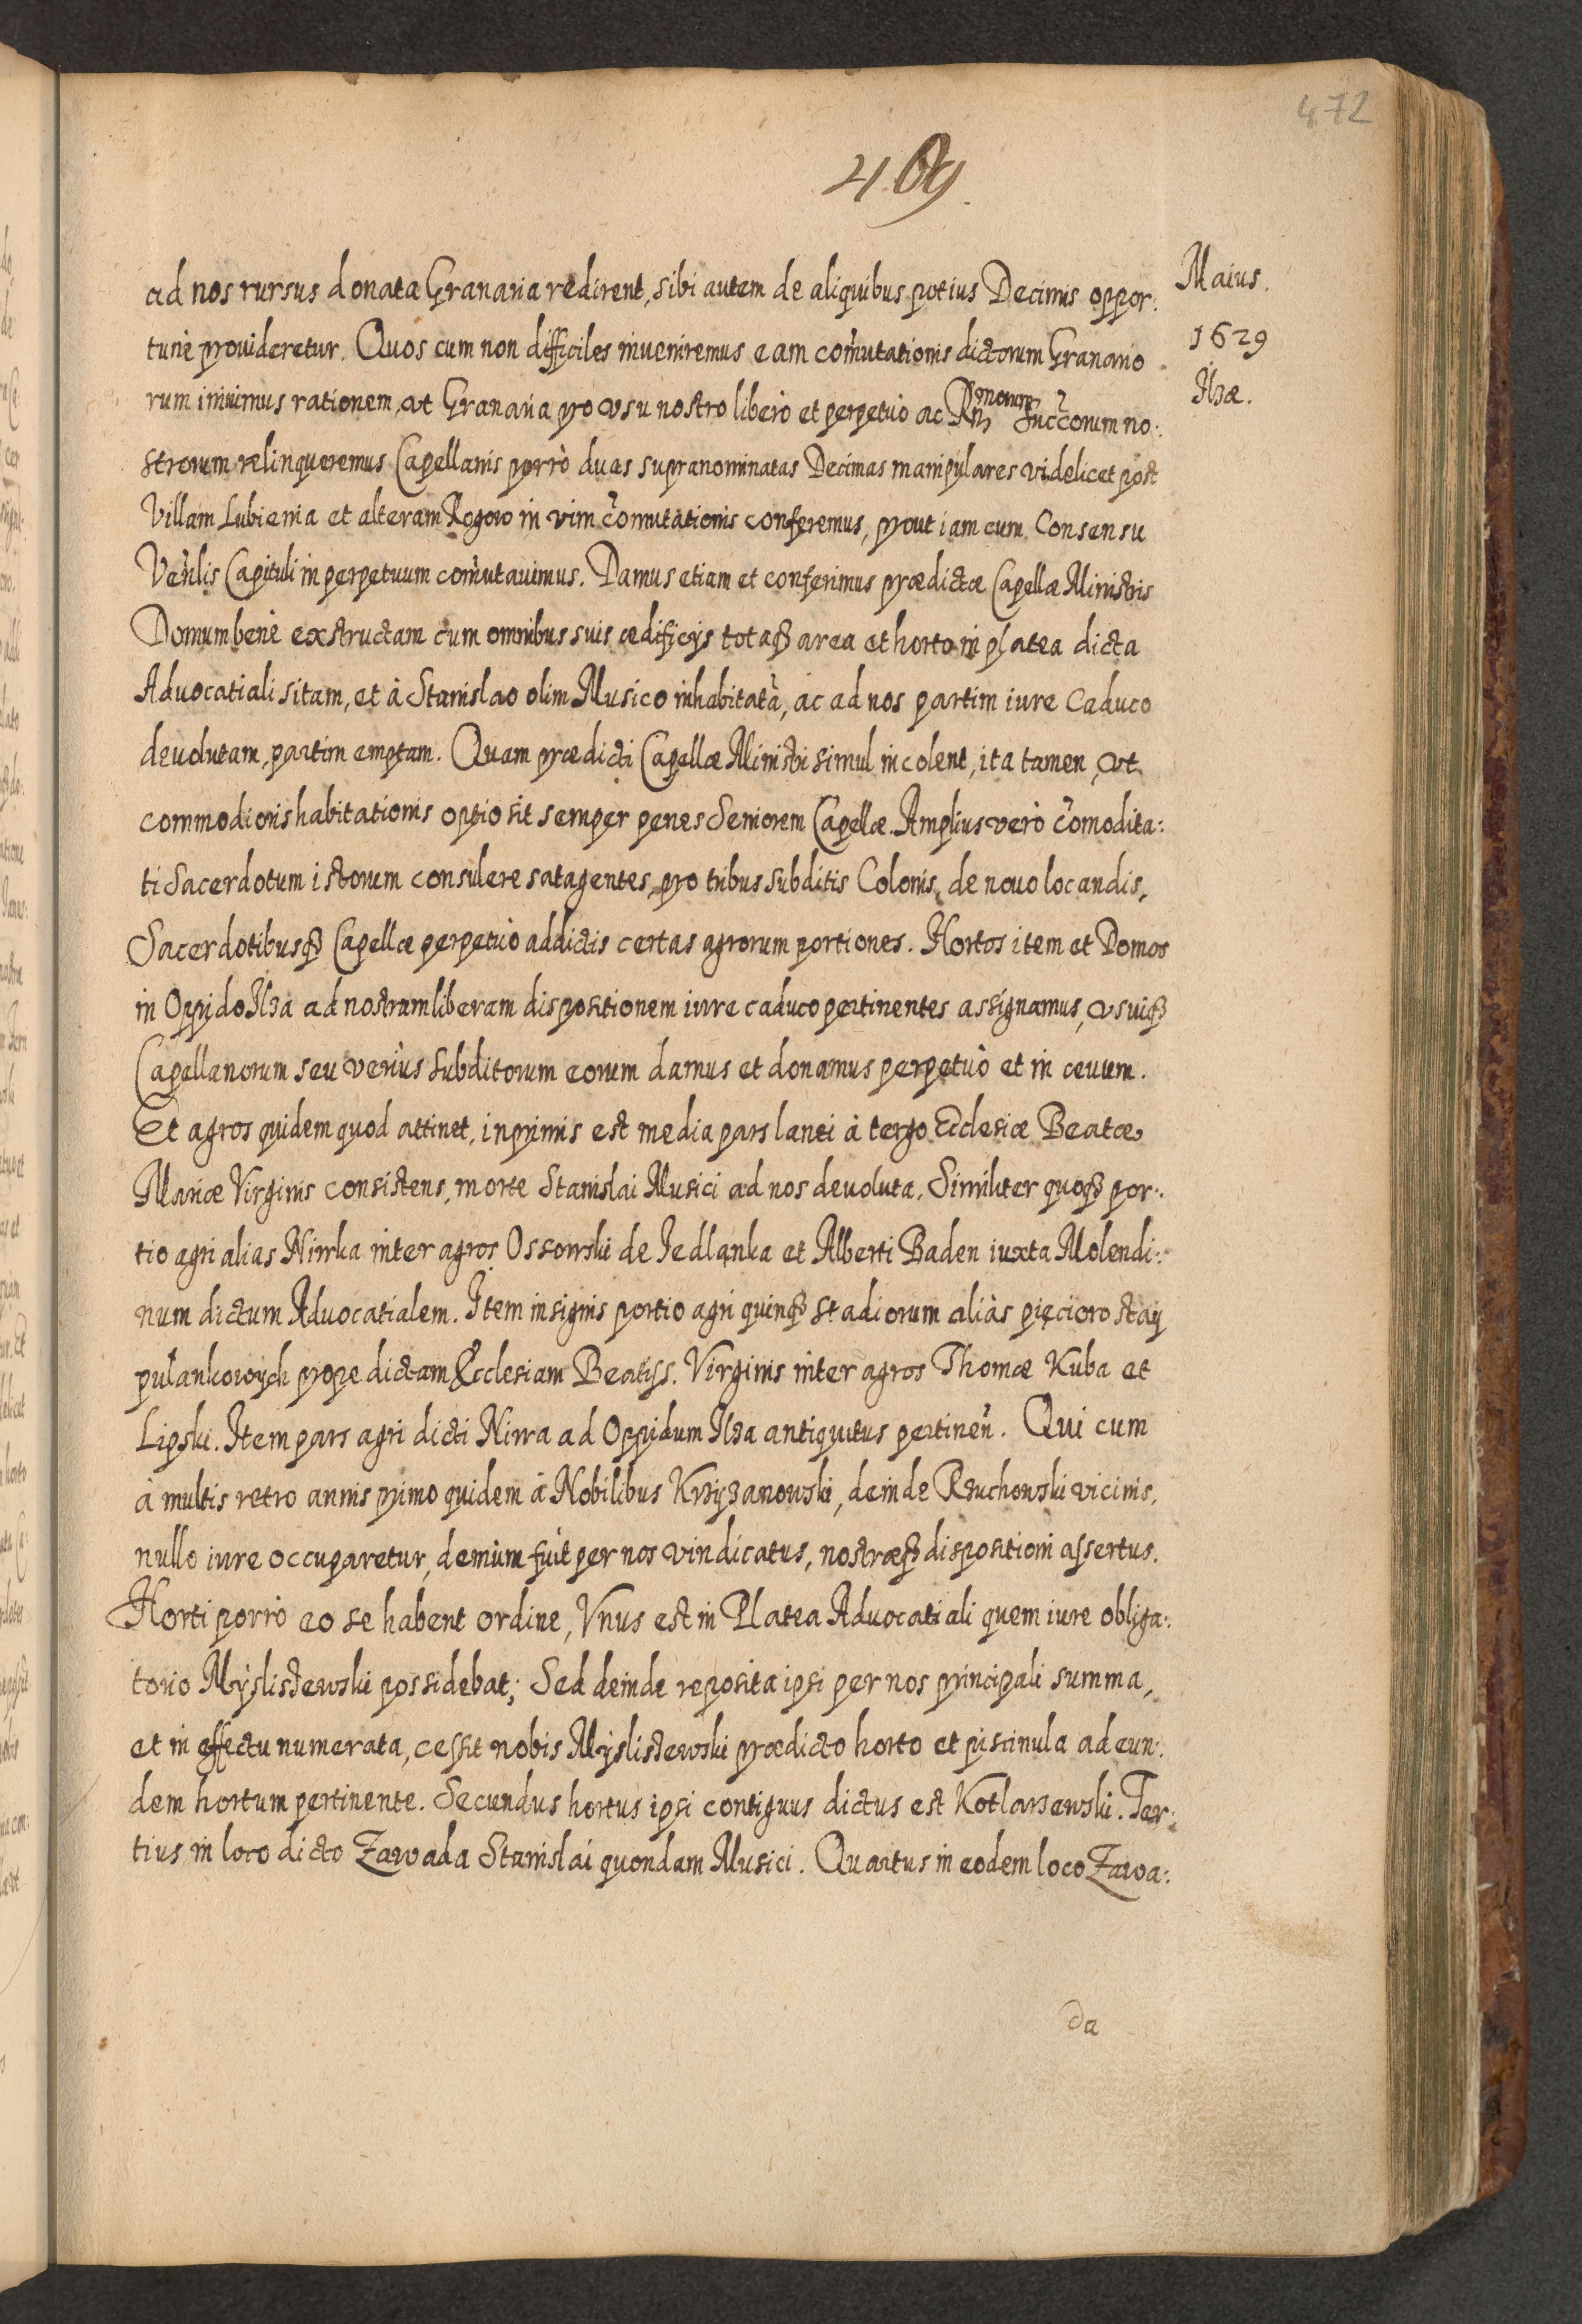 472
409.
Maius.
1629
Ilzæ.
ad nos rursus donata Granaria redirent, sibi autem de aliquibus potius Decimis oppor:
tunè prouideretur. Quos cum non difficiles inueniremus eam com̃utationis dictorum Granario
rum iniuimus rationem, vt Granaria pro vsu nostro liberò et perpetuò ac Rmorum Succorum no:
strorum relinqueremus Capellanis porrò duas supranominatas Decimas manipulares videlicet post
Villam Lubienia et alteram Rogow in vim com̃utationis conferemus, prout iam cum Consensu
Venlis Capituli in perpetuum com̃utauimus. Damus etiam et conferimus prædictæ Capellæ Ministris
Domum benè exstructam cum omnibus suis ædificijs totaqꝫ area et horto in platea dicta
Aduocatiali sitam, et à Stanislao olim Musico inhabitatã, ac ad nos partim iure Caduco
deuolutam, partim emptam. Quam prædicti Capellæ Ministri simul incolent, ita tamen, vt
commodioris habitationis optio sit semper penes Seniorem Capellæ. Amplius verò com̃odita:
ti Sacerdotum istorum consulere satagentes, pro tribus subditis Colonis, de nouo locandis,
Sacerdotibusqꝫ Capellæ perpetuò addictis certas agrorum portiones. Hortos item et Domos
in Oppido Ilza ad nostram liberam dispositionem iure caduco pertinentes assignamus, vsuiqꝫ
Capellanorum seu veriùs subditorum eorum damus et donamus perpetuò et in æuum.
Et agros quidem quod attinet, inprimis est media pars lanei à tergo Ecclesiæ Beatæ
Mariæ Virginis consistens, morte Stanislai Musici ad nos deuoluta. Similiter quoqꝫ por:
tio agri alias Niwka inter agros Ossowski de Jedlanka et Alberti Baden iuxta Molendi:
num dictum Aduocatialem. Item insignis portio agri quinqꝫ stadiorum aliàs pięcioro staÿ
pułankowych prope dictam Ecclesiam Beatiss. Virginis inter agros Thomæ Kuba et
Lipski. Item pars agri dicti Niwa ad Oppidum Ilza antiquitus pertineñ. Qui cum
à multis retro annis primo quidem à Nobilibus Krzyżanowski, deinde Rzuchowski vicinis,
nullo iure occuparetur, demùm fuit per nos vindicatus, nostræqꝫ dispositioni assertus.
Horti porrò eo se habent ordine, Vnus est in Platea Aduocatiali quem iure obliga:
torio Myslistewski possidebat; Sed deinde reposita ipsi per nos principali summa,
et in effectu numerata, cessit nobis Myslistewski prædicto horto et piscinula ad eun:
dem hortum pertinente. Secundus hortus ipsi contiguus dictus est Kotlarzewski. Ter:
tius in loco dicto Zawada Stanislai quondam Musici. Quartus in eodem loco Zawa:
da